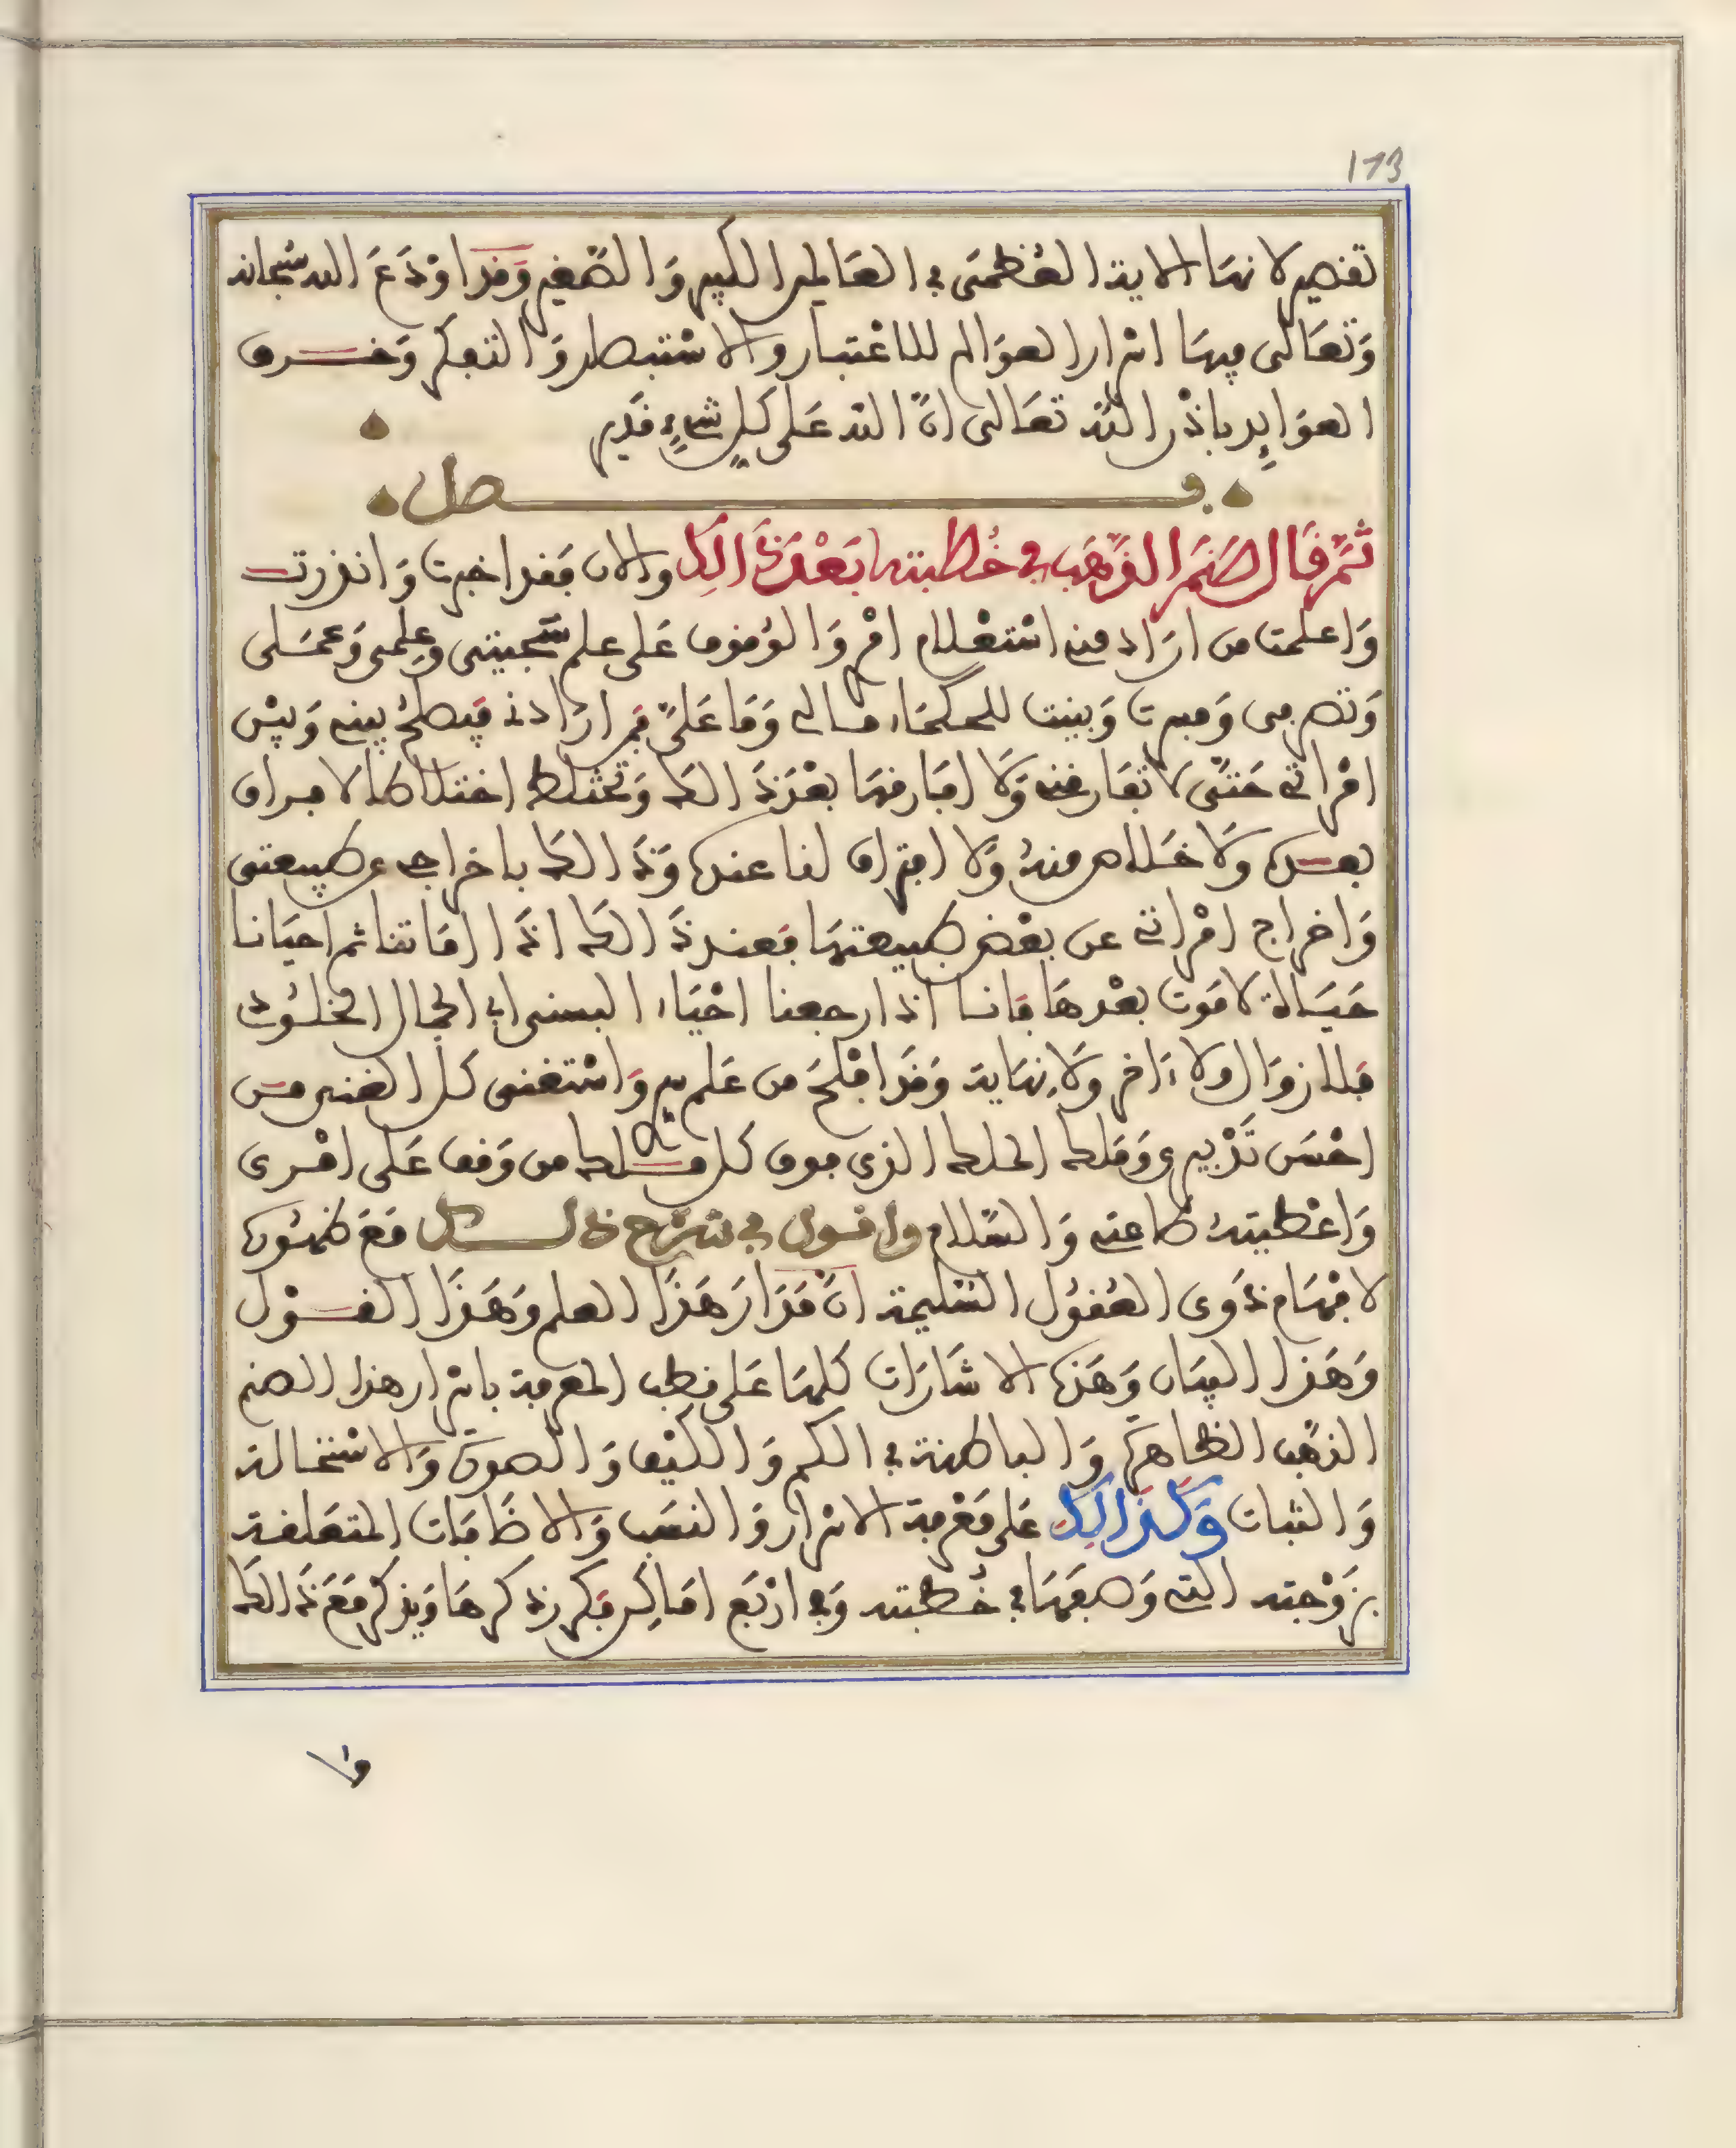 173
تقصير لانها الاية العظمى في العالمين الكبير وَالصّغير وَقد اوْدَعَ الله سُبحانه
وَتعَالى فيهَا اسْرار العوَالم للاعْتبار والاسْتنباط وَالتفكر وَخرق
العوَايد باذْن الله تعَالى انّ الله عَلى كل شيءٍ قَدير
فصل
ثمّ قَال الصَنم الذّهَب في خُطبته بَعْد ذَالك والان فقد اخبرت وَانذرت
وَاعلمت من ارَاد مني اسْتعْلام امْر وَالوُقوف عَلى علم سَجيتى وعِلمى وَعمَلى
وَتصرفى وَفسرت وَبينت للحكمَاء مالى وَمَا عَلىّ فمن ارَادني فيصلحُ بيني وَبيْن
امْراتي حَتّى لا تفَارقني وَلَا افَارقهَا بعْد ذَ الك وَتختلط اختلاطا لا فراق
بعده وَلَا خَلاص منهُ وَلا افتراق لنا عنه وَذَ الك باخراجي عن طبيعتى
وَاخراج امْراتي عن بعْض طبيعتهَا فعند ذَ الك اذَا امَاتنا ثم احيَانا
حَيَاة لا مَوت بعْدهَا فانا اذا رجعنا احْيَاء البسنى الجمال الخلُود
فلا زوَال ولا ءَاخر وَلا نهَاية وَقَد افلحَ من عَلم سري وَاسْتغنى كل الغنى من
احْسَن تَدْبيرى وَمَلك الملك الذى فوق كل ملك من وَقف عَلى امْرى
وَاعْطيتهُ طاعتي وَالسَّلام واقول في شرْح ذالك مَعَ ظهُوره
لافهَام ذَوى العُقوُل السَّليمة انّ مَدَار هَذَا العلم وَهَذَا القوْل
وَهَذا البيَان وَهَذه الاشَارَات كلهَا عَلى قطب المعرفة باسْرار هذا الصنم
الذهَب الظاهرَة وَالباطنة في الكم وَالكَيْف وَالصورَة وَالاسْتحالة
وَالثبات وَكَذَالِكَ عَلى مَعْرفة الاسْرار وَالنسَب وَالاضَافَات المتعَلقة
بزَوْجته التي وَصفهَا في خُطبته وَفي ارْبَع امَاكِن فكرر ذكرهَا وَيذكر مَعَ ذَ الك